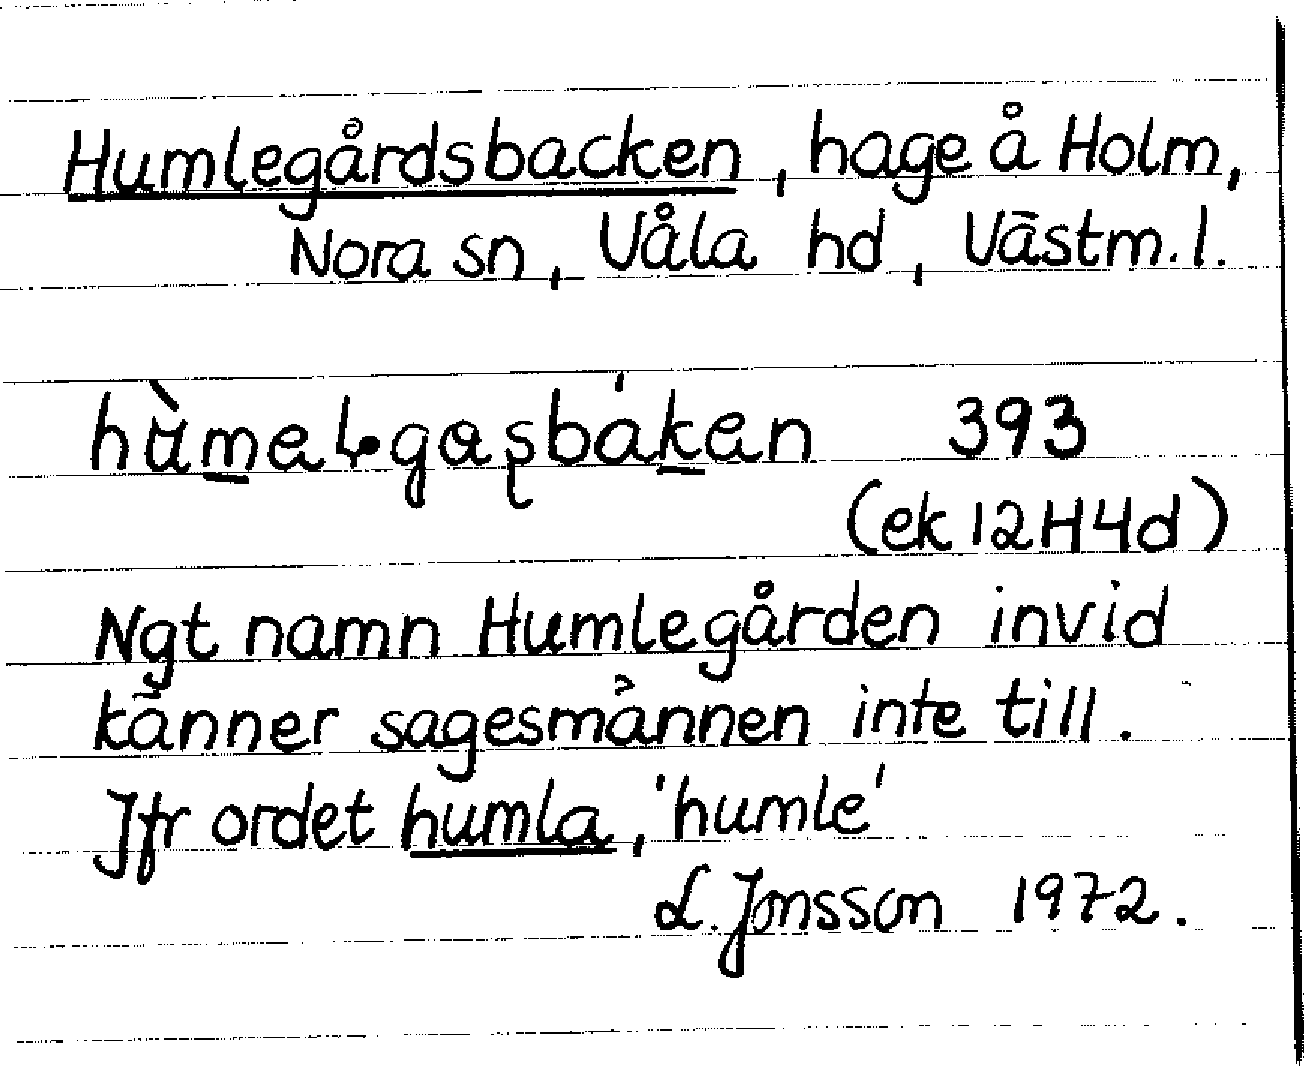 Humlegårdsbacken, hage å Holm,
Nora sn, Våla hd, Västm.l.
393
(ek 12H4d)
Ngt namn Humlegården invid
känner sagesmännen inte till.
Jfr ordet humla, 'humle'
L. Jonsson 1972.